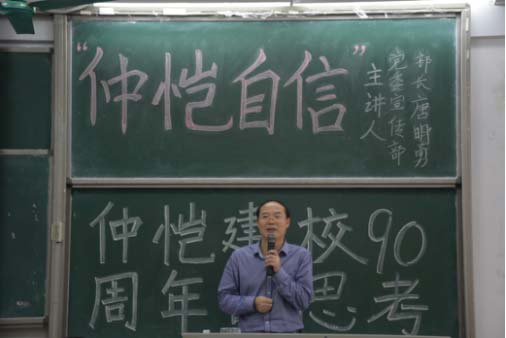 “仲恺自信”
主讲人
党委宣传部
部长唐明勇
仲恺建校90
周年思考